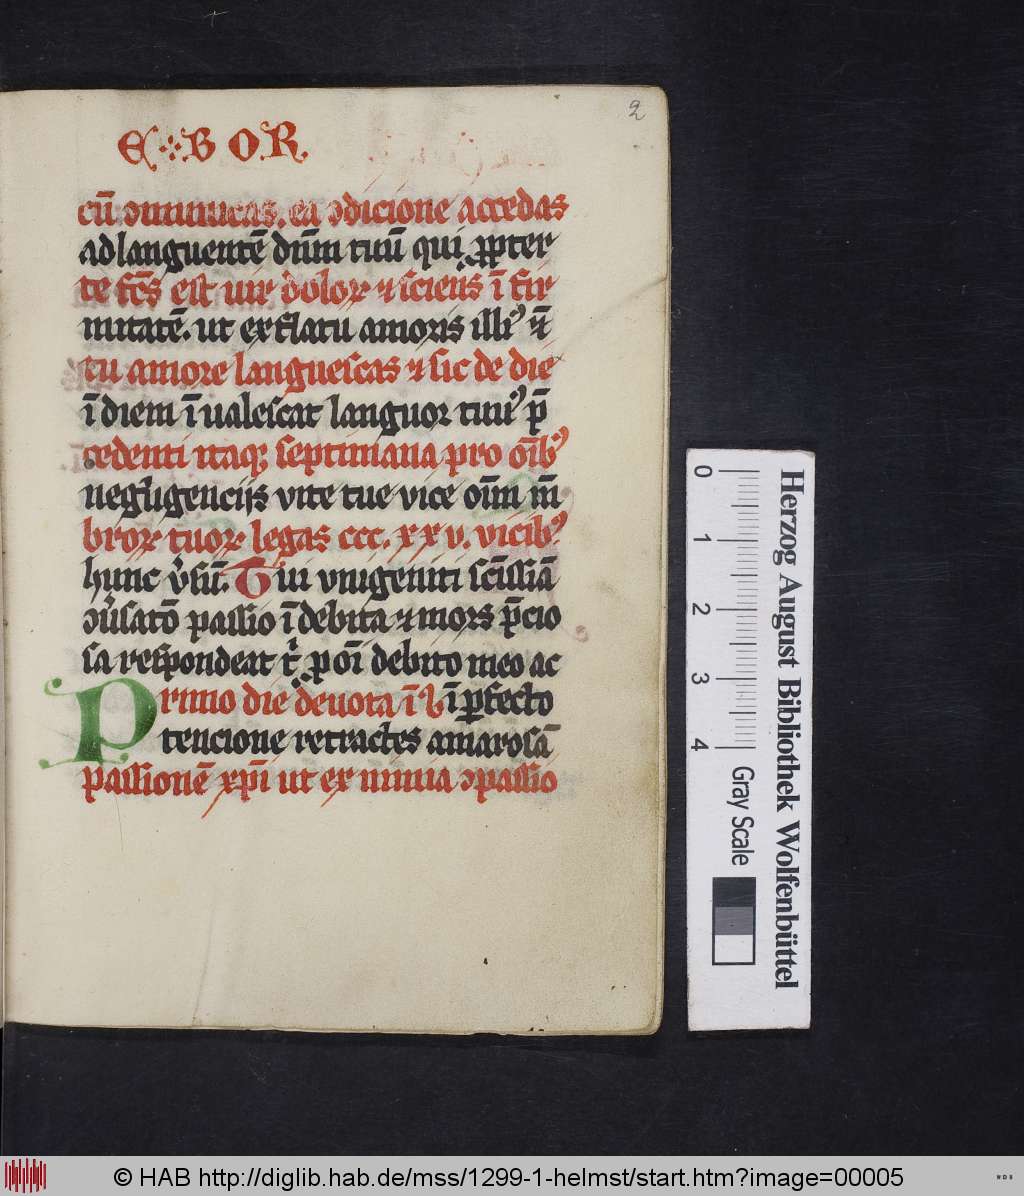 2
E B O R.
cū ɔmunicas. ea ɔdicione accedas
ad languentē dn̄m tuū qui ꝓpter
te fc̄s est uir doloꝝ ⁊ sciens ī fir
mitatē. ut ex flatu amoris illiꝰ ⁊ ī
tu amore languescas ⁊ sic de die
ī diem īualescat languor tuuꝰ p̄
cedenti itaqꝫ septimana pro oīb̄ꝰ
negligencijs vite tue vice oīm m̄
broꝝ tuoꝝ legas ccc. xxv. vicibꝰ
hunc v̓sū. Tui vnigeniti sc̄issīā
ɔv̓satō passio īdebita ⁊ mors p̄cio
sa respondeat t̓ p oī debito meo ac
Primo die deuota ī ꝑfecto
tencione retractes amarosā
passionē xp̄i ut ex nimia ɔpassio
0 1 2 3 4
Gray Scale
Herzog August Bibliothek Wolfenbüttel
© HAB http://diglib.hab.de/mss/1299-1-helmst/start.htm?image=00005